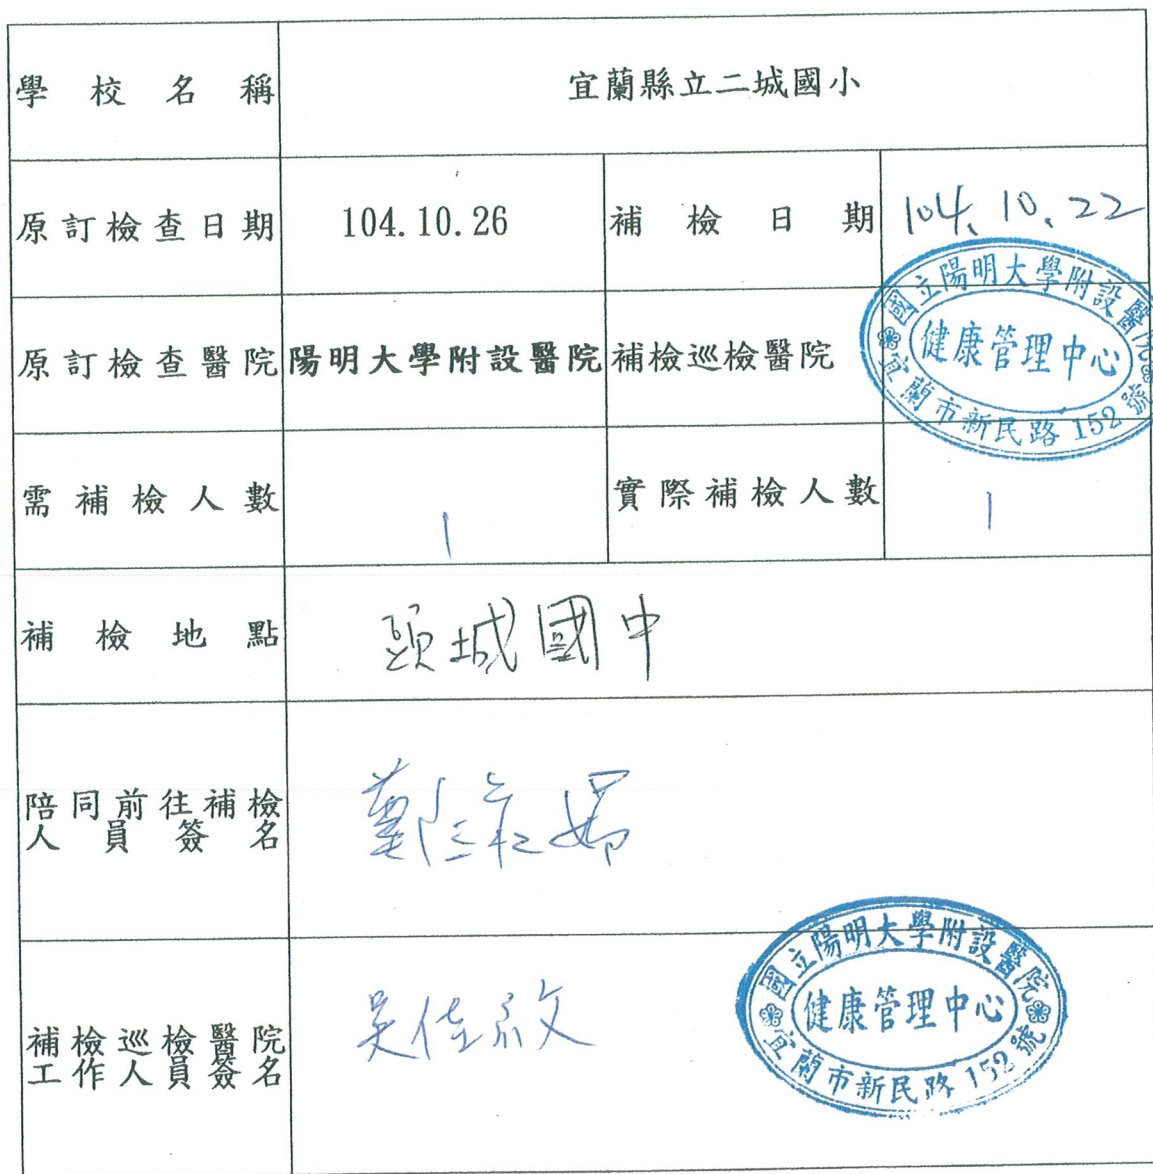 學校名稱 宜蘭縣立二城國小
原訂檢查日期 104.10.26 補檢日期 104.10.22
原訂檢查醫院 陽明大學附設醫院 補檢巡檢醫院
國立陽明大學附設醫院
健康管理中心
宜蘭市新民路152號
需補檢人數 1 實際補檢人數 1
補檢地點 頭城國中
陪同前往補檢
人員簽名
鄭
補檢巡檢醫院
工作人員簽名
吳佳
國立陽明大學附設醫院
健康管理中心
宜蘭市新民路152號